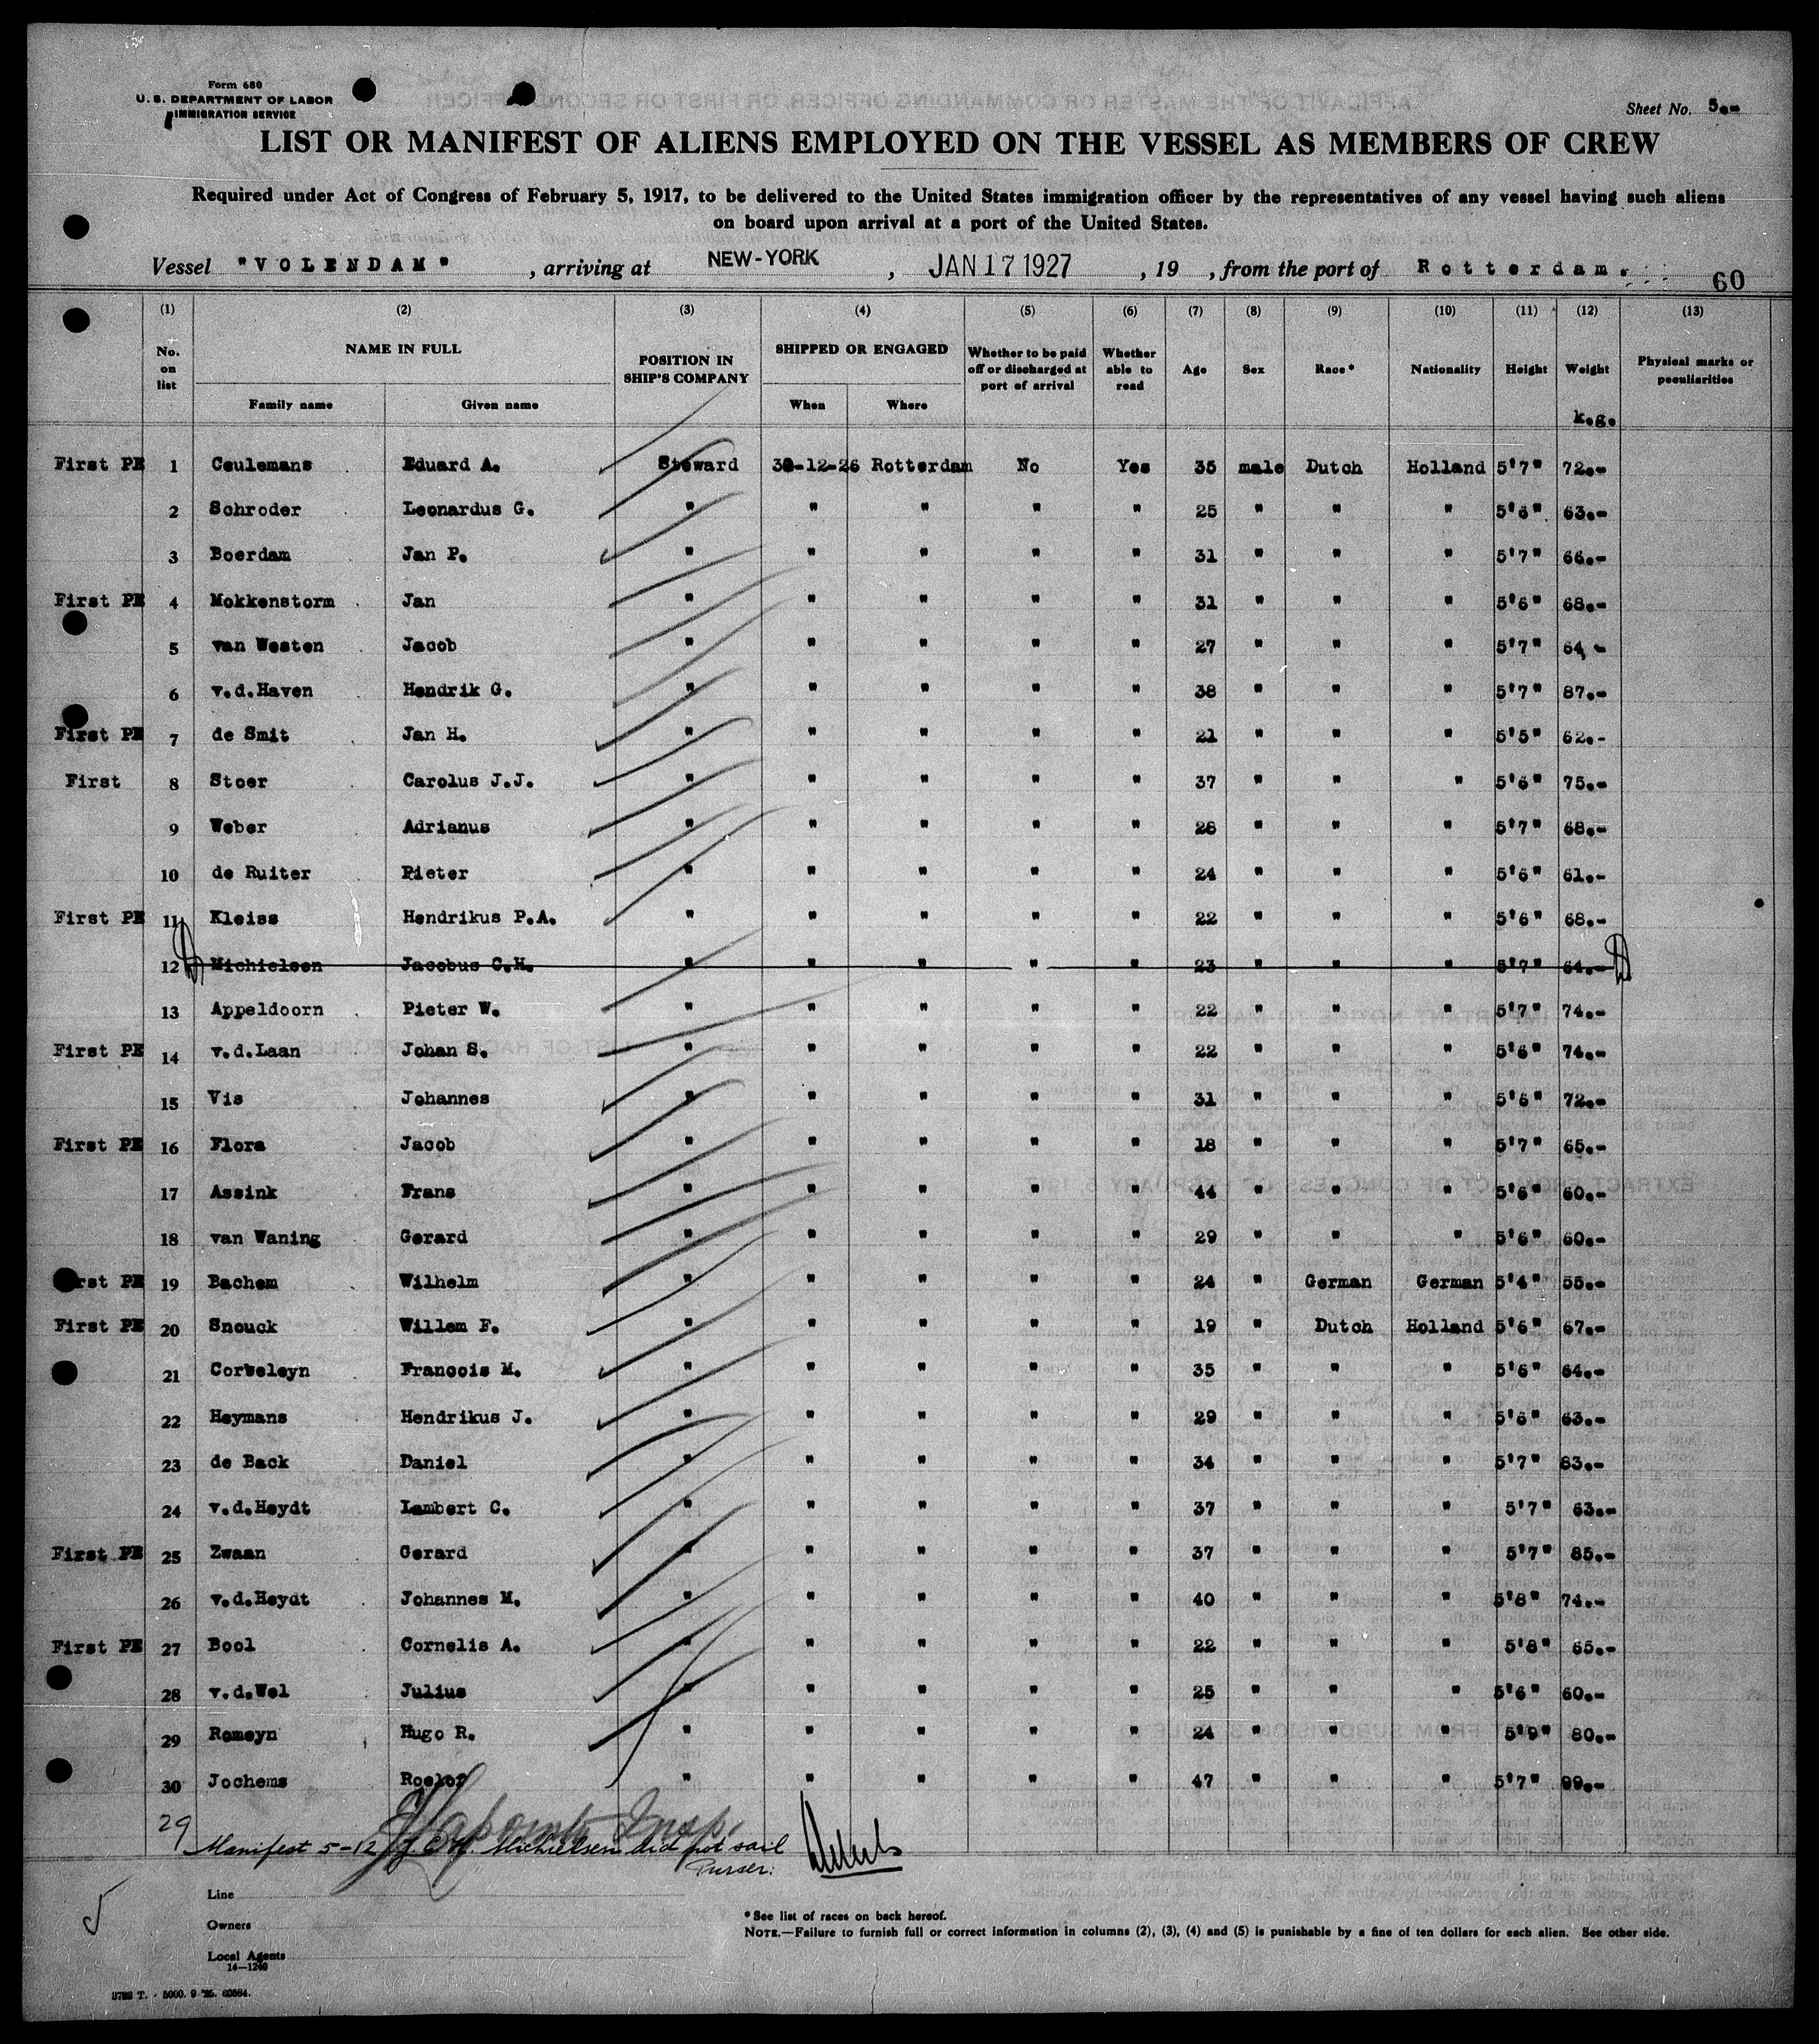 Form 680
U. S. DEPARTMENT OF LABOR
IMMIGRATION SERVICE
Sheet No. 5.-
LIST OR MANIFEST OF ALIENS EMPLOYED ON THE VESSEL AS MEMBERS OF CREW
Required under Act of Congress of February 5, 1917, to be delivered to the United States immigration officer by the representatives of any vessel having such aliens
on board upon arrival at a port of the United States.
Vessel "VOLENDAM", arriving at NEW-YORK, JAN 17 1927, 19 , from the port of Rotterdam.
60
(1) (2) (3) (4) (5) (6) (7) (8) (9) (10) (11) (12) (13)
No. on list NAME IN FULL POSITION IN SHIP'S COMPANY SHIPPED OR ENGAGED Whether to be paid off or discharged at port of arrival Whether able to read Age Sex Race* Nationality Height Weight Physical marks or peculiarities
Family name Given name When Where k.g.
First PE 1 Ceulemans Eduard A. Steward 30-12-26 Rotterdam No Yes 35 male Dutch Holland 5'7" 72.-
2 Schroder Leonardus G. " " " " " 25 " " " 5'6" 63.-
3 Boerdam Jan P. " " " " " 31 " " " 5'7" 66.-
First PE 4 Mokkenstorm Jan " " " " " 31 " " " 5'6" 68.-
5 van Westen Jacob " " " " " 27 " " " 5'7" 64 -
6 v.d.Haven Hendrik G. " " " " " 38 " " " 5'7" 87.-
First PE 7 de Smit Jan H. " " " " " 21 " " " 5'5" 62.-
First 8 Stoer Carolus J.J. " " " " " 37 " " " 5'6" 75.-
9 Weber Adrianus " " " " " 28 " " " 5'7" 68.-
10 de Ruiter Pieter " " " " " 24 " " " 5'6" 61.-
First PE 11 Kleiss Hendrikus P.A. " " " " " 22 " " " 5'6" 68.-
12 Michielsen Jacobus C.H. " " " " " 23 " " " 5'7" 64.-
13 Appeldoorn Pieter W. " " " " " 22 " " " 5'7" 74.-
First PE 14 v.d.Laan Johan S. " " " " " 22 " " " 5'6" 74.-
15 Vis Johannes " " " " " 31 " " " 5'6" 72.-
First PE 16 Flora Jacob " " " " " 18 " " " 5'7" 65.-
17 Assink Frans " " " " " 44 " " " 5'6" 60.-
18 van Waning Gerard " " " " " 29 " " " 5'6" 60.-
rst PE 19 Bachem Wilhelm " " " " " 24 " German German 5'4" 55.-
First PE 20 Snouck Willem F. " " " " " 19 " Dutch Holland 5'6" 67.-
21 Corveleyn Francois M. " " " " " 35 " " " 5'6" 64.-
22 Heymans Hendrikus J. " " " " " 29 " " " 5'6" 63.-
23 de Back Daniel " " " " " 34 " " " 5'7" 83.-
24 v.d.Heydt Lambert C. " " " " " 37 " " " 5'7" 63.-
First PE 25 Zwaan Gerard " " " " " 37 " " " 5'7" 85.-
26 v.d.Heydt Johannes M. " " " " " 40 " " " 5'8" 74.-
First PE 27 Bool Cornelis A. " " " " " 22 " " " 5'8" 65.-
28 v.d.Wel Julius " " " " " 25 " " " 5'6" 60.-
29 Romeyn Hugo R. " " " " " 24 " " " 5'9" 80.-
30 Jochems Roelof " " " " " 47 " " " 5'7" 99.-
29
Insp.
Manifest 5-12 J. C. H. Michielsen did not sail
Purser:
5
Line
Owners
Local Agents
14—1240
*See list of races on back hereof.
NOTE.—Failure to furnish full or correct information in columns (2), (3), (4) and (5) is punishable by a fine of ten dollars for each alien. See other side.